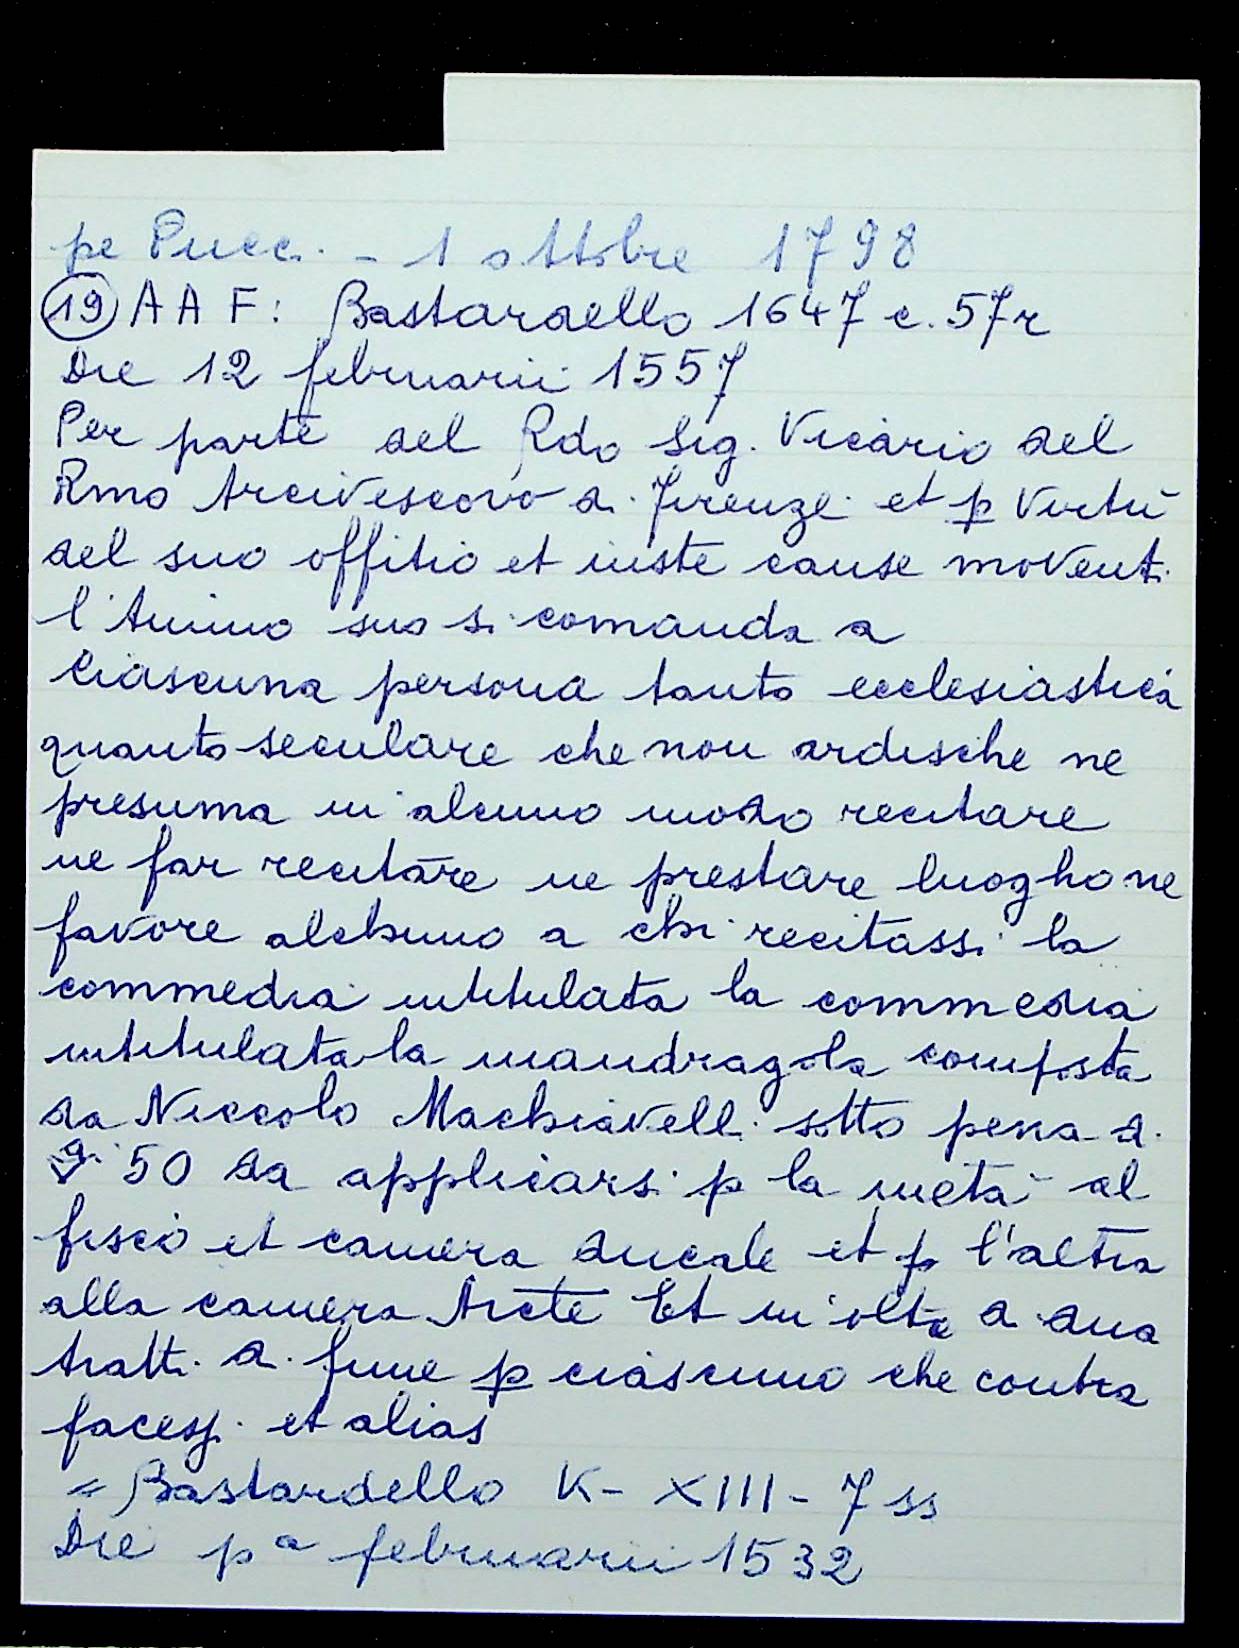 pe Pucci - 1 ottobre 1798
(19) A A F: Bastardello 1647 c. 57r
Die 12 februarii 1557
Per parte del Rdo Sig. Vicario del
Rmo Arcivescovo di Firenze et p Virtù
del suo offitio et iuste cause moventi
l'Animo suo si comanda a
ciascuna persona tanto ecclesiastica
quanto seculare che non ardische ne
presuma in alcuno modo recitare
ne far recitare ne prestare luogho ne
favore alchuno a chi recitassi la
commedia intitulata la commedia
intitulata la mandragola composta
da Niccolo Machiavelli sotto pena di
50 da applicarsi p la metà al
fisco et camera ducale et p l'altra
alla camera Arcte Et in oltre di dua
tratti di fune p ciascuno che contra
facessi et alias
= Bastardello K - XIII - 7 ss
Die pa februarii 1532